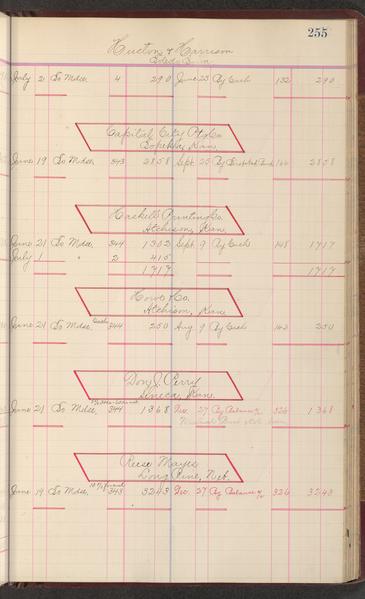 255
Huston & Harrison
July 2 To Mdse. 4 290 June 23 By Cash 132 290
Capital City Ptg Co.
Topeka, Kan.
June 19 To Mdse. 343 2858 Sept. 25 By 2858
Haskell Printing Co.
Atchison, Kans.
June 21 To Mdse. 344 1302 Sept. 9 By Cash 148 1717
July 1 " 2 415
1717 1717
Howe & Co.
Atchison, Kans.
June 21 To Mdse. 344 250 Aug 9 By Cash 250
Don J. Perry
Seneca, Kans.
June 21 To Mdse. 344 1368 Dec. 27 By Balance 326 1368
Reese Mayes
Long Pine, Neb.
June 19 To Mdse. 343 3243 Dec. 27 By Balance 326 3243